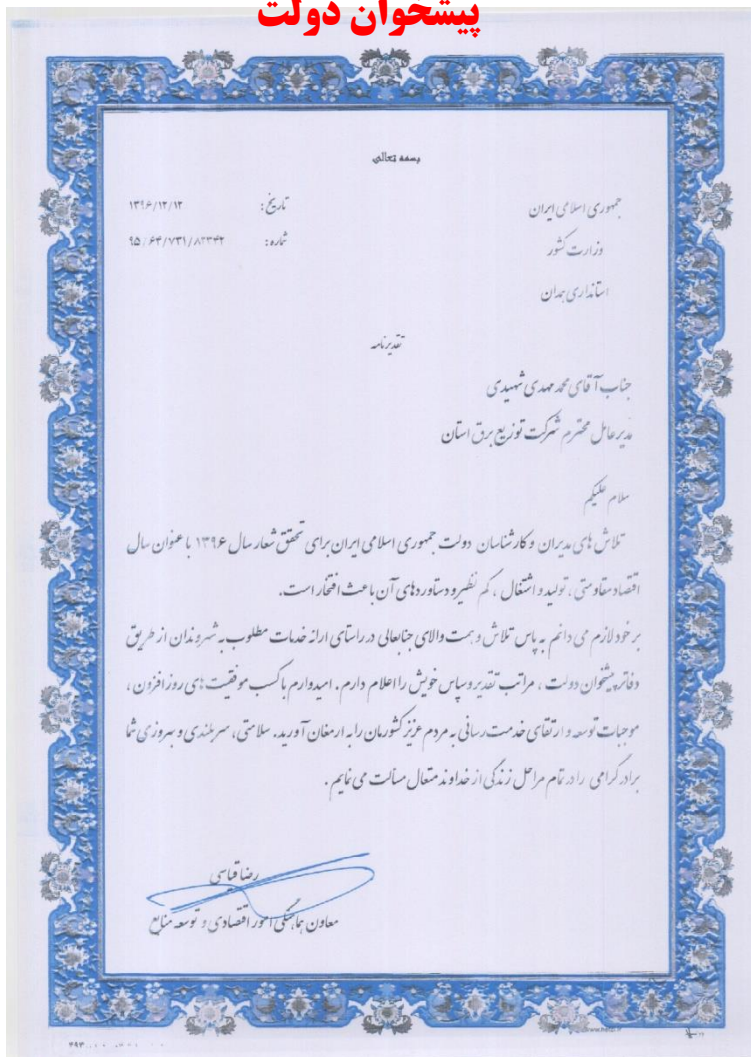 پیشخوان دولت
بسمه تعالی
جمهوری اسلامی ایران
تاریخ: ۱۳۹۶/۱۲/۱۲
وزارت کشور
شماره: ۹۵/۶۴/۷۳۱/۸۲۳۴۲
استانداری همدان
تقدیرنامه
جناب آقای محمد مهدی شهیدی
مدیرعامل محترم شرکت توزیع برق استان
سلام علیکم
تلاش های مدیران و کارشناسان دولت جمهوری اسلامی ایران برای تحقق شعار سال ۱۳۹۶ با عنوان سال
اقتصاد مقاومتی، تولید و اشتغال، کم نظیر و دستاوردهای آن باعث افتخار است.
بر خود لازم می دانم به پاس تلاش و همت والای جنابعالی در راستای ارائه خدمات مطلوب به شهروندان از طریق
دفاتر پیشخوان دولت، مراتب تقدیر و سپاس خویش را اعلام دارم. امیدوارم با کسب موفقیت های روز افزون،
موجبات توسعه و ارتقای خدمت رسانی به مردم عزیز کشورمان را به ارمغان آورید. سلامتی، سربلندی و بهروزی شما
برادر گرامی را در تمام مراحل زندگی از خداوند متعال مسألت می نمایم.
رضا قیاسی
معاون هماهنگی امور اقتصادی و توسعه منابع